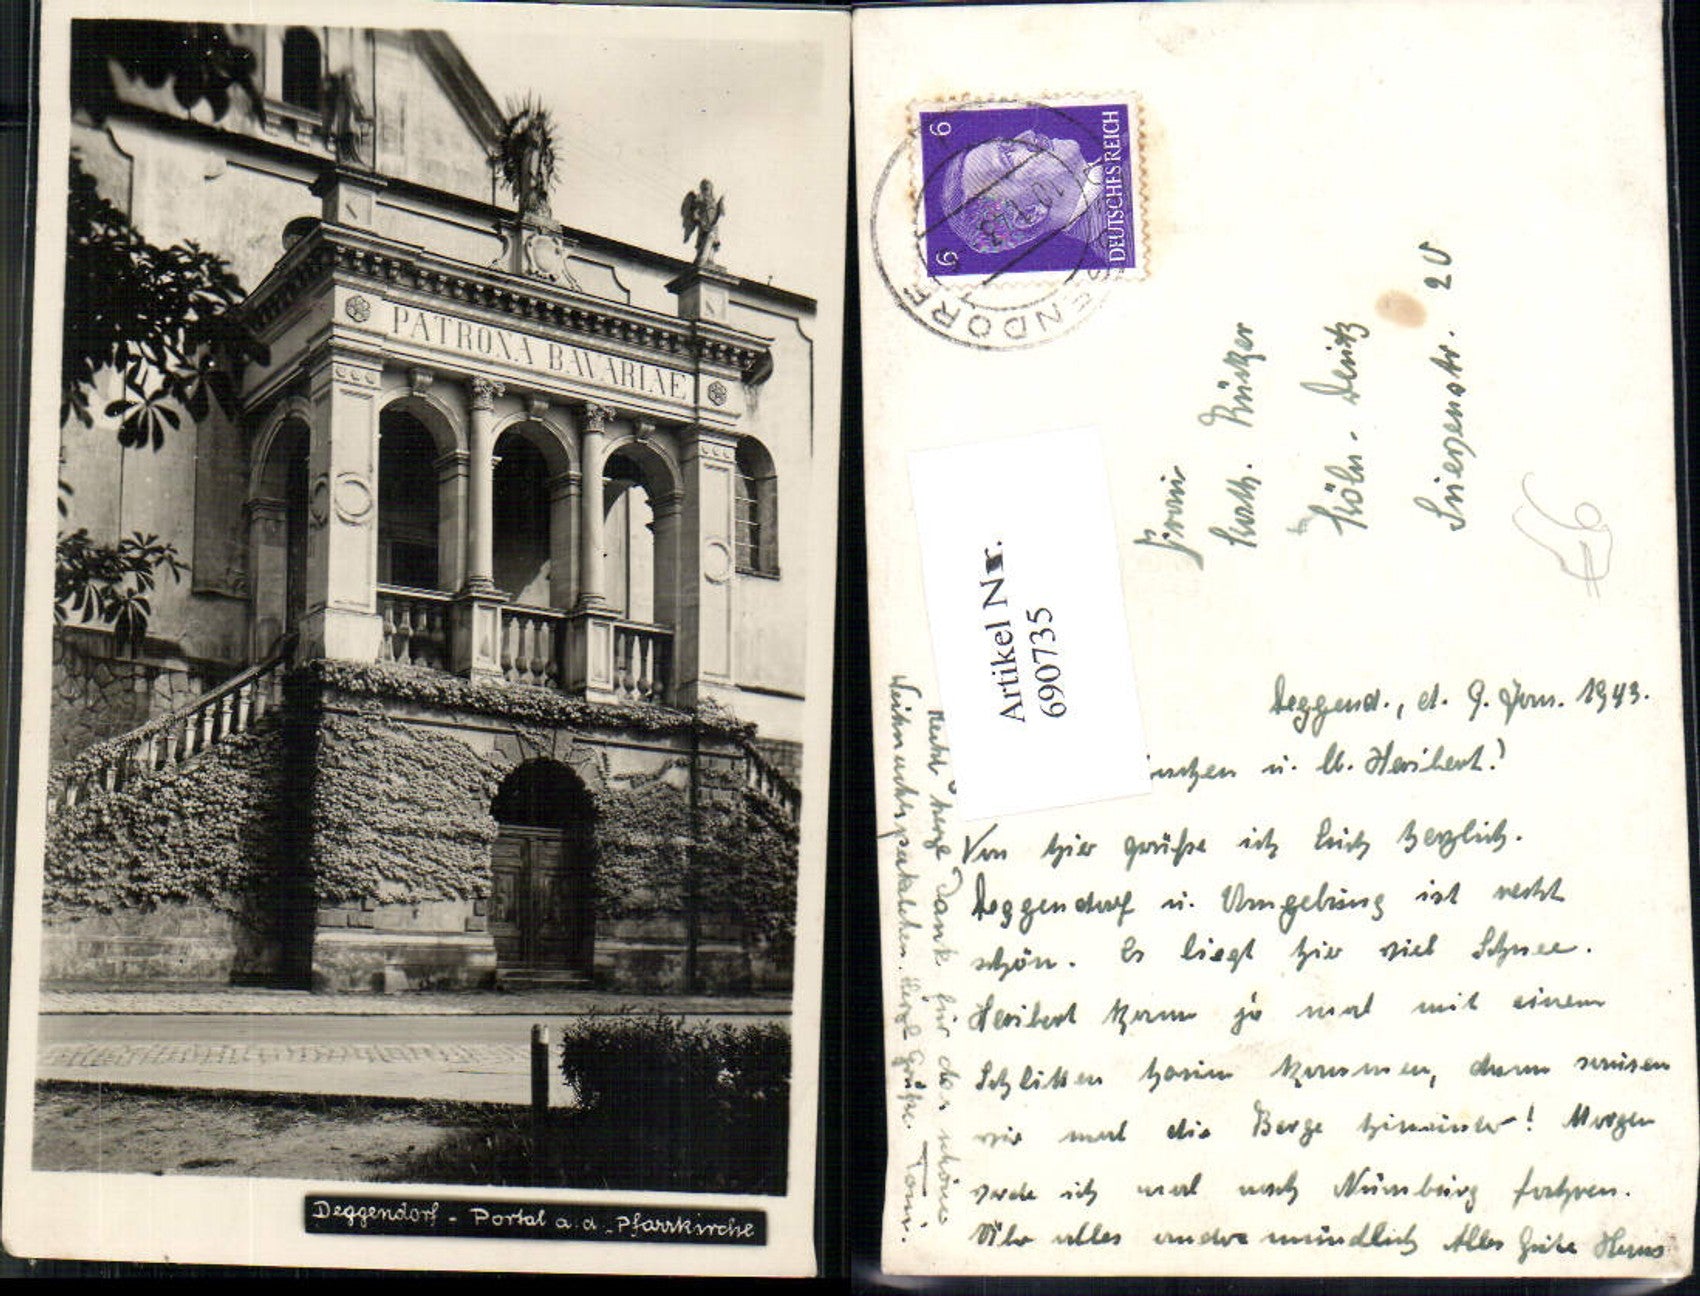 PATRONA BAVARIAE
Deggendorf - Portal a. d. Pfarrkirche
6
6
DEUTSCHES REICH
Frau
Kath.
Köln - Deutz
Siegenstr. 20
Artikel Nr.
690735
Deggend., d. 9. Jan. 1943.
u. lb. Heribert!
Von hier grüße ich Euch herzlich.
Deggendorf u. Umgebung ist recht
schön. Es liegt hier viel Schnee.
Heribert kann ja mal mit einem
Schlitten kommen, dann sausen
wir mal die Berge hinunter! Morgen
werde ich mal nach Nürnberg fahren.
Über alles andre mündlich Alles Gute Hans
Recht herzl Dank für das schöne
Weihnachtspaketchen. Herzl Grüße Toni.